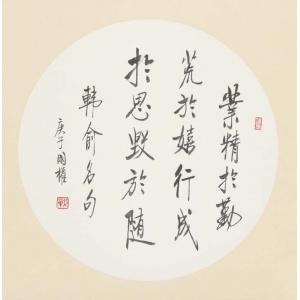 業精於勤
荒於嬉行成
於思毁於随
韓俞名句
庚子國權